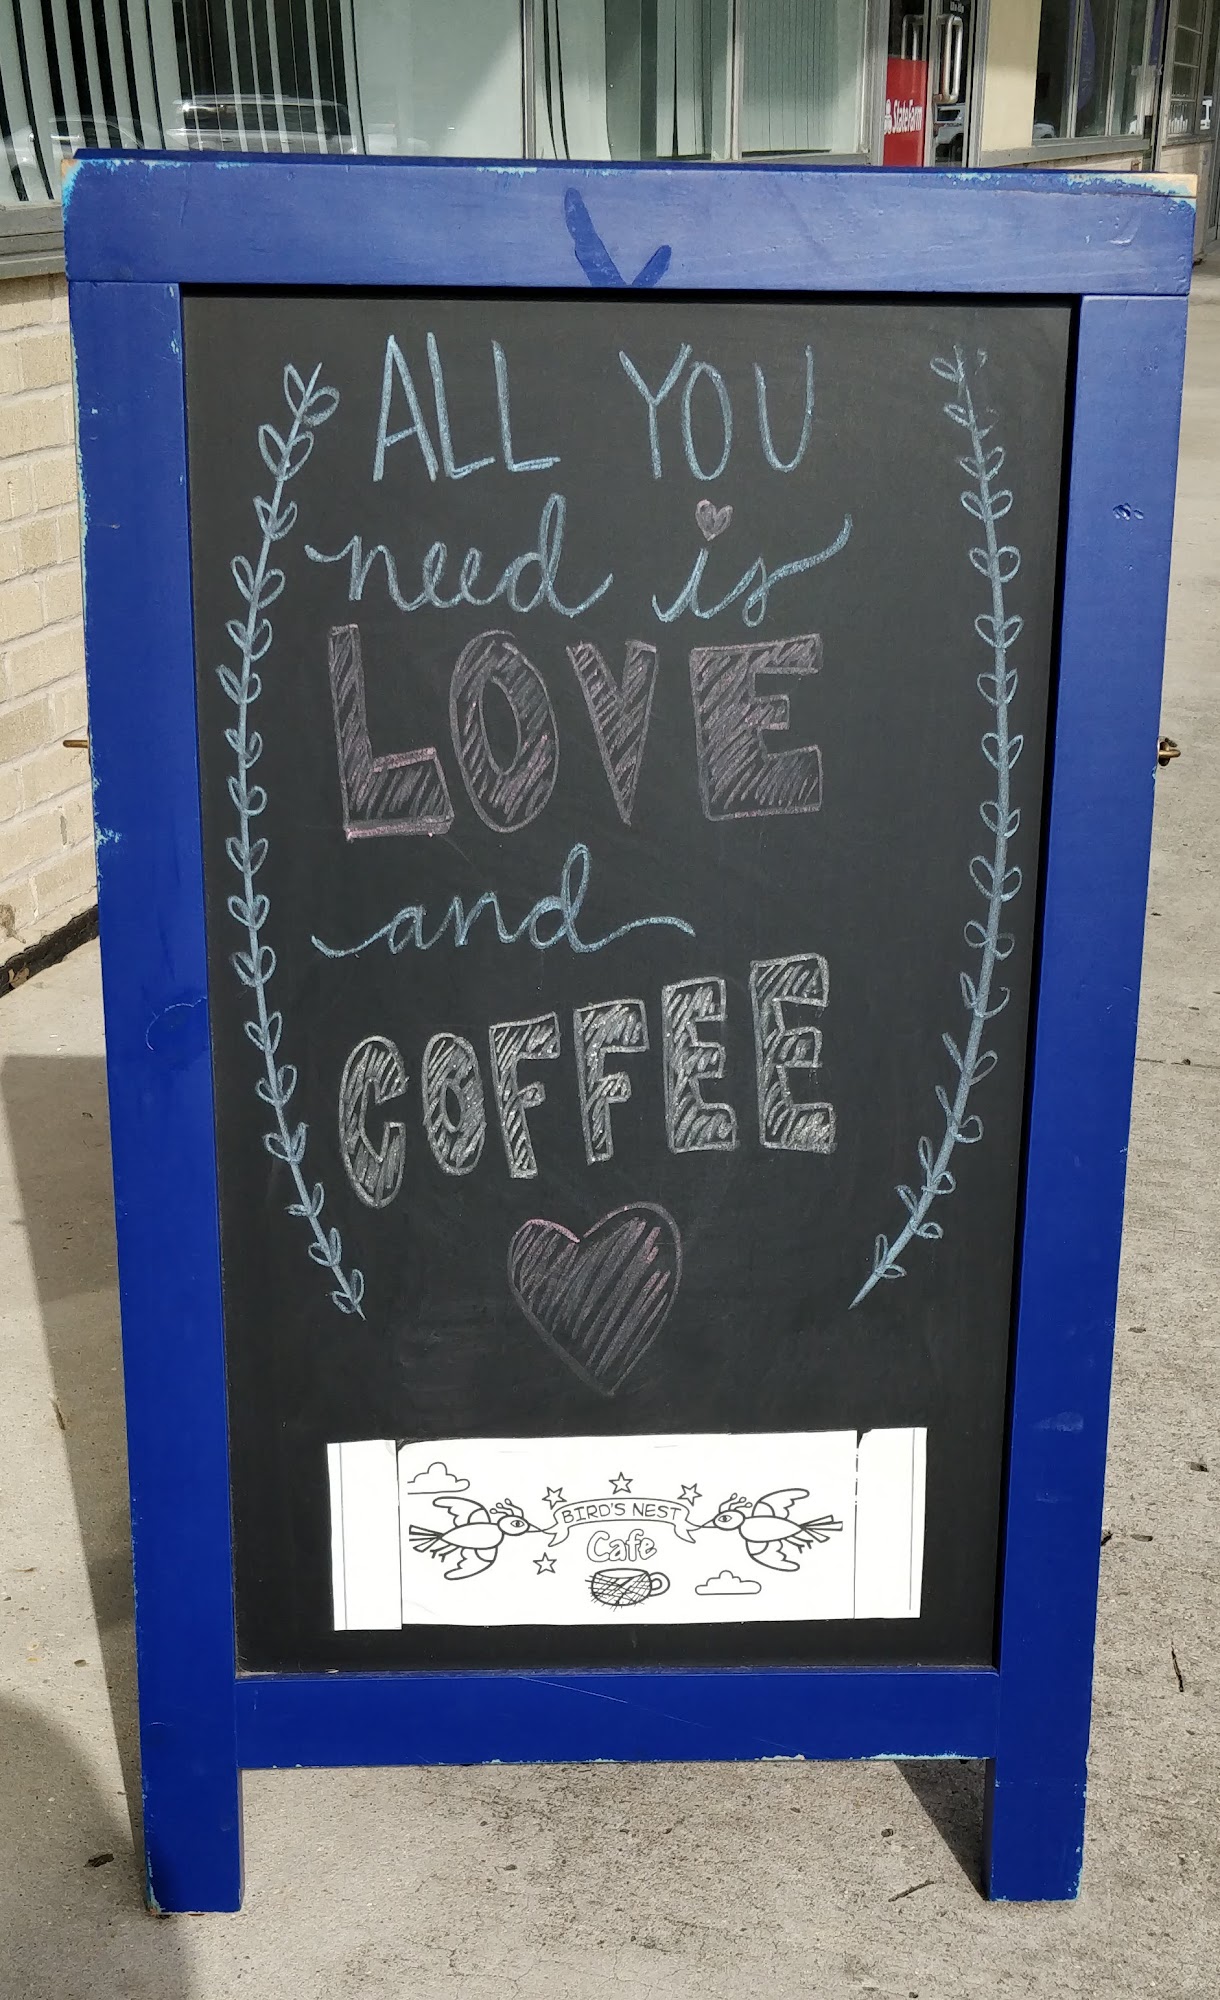 StateFarm
ALL YOU
need is
LOVE
and
COFFEE
BIRD'S NEST
Cafe